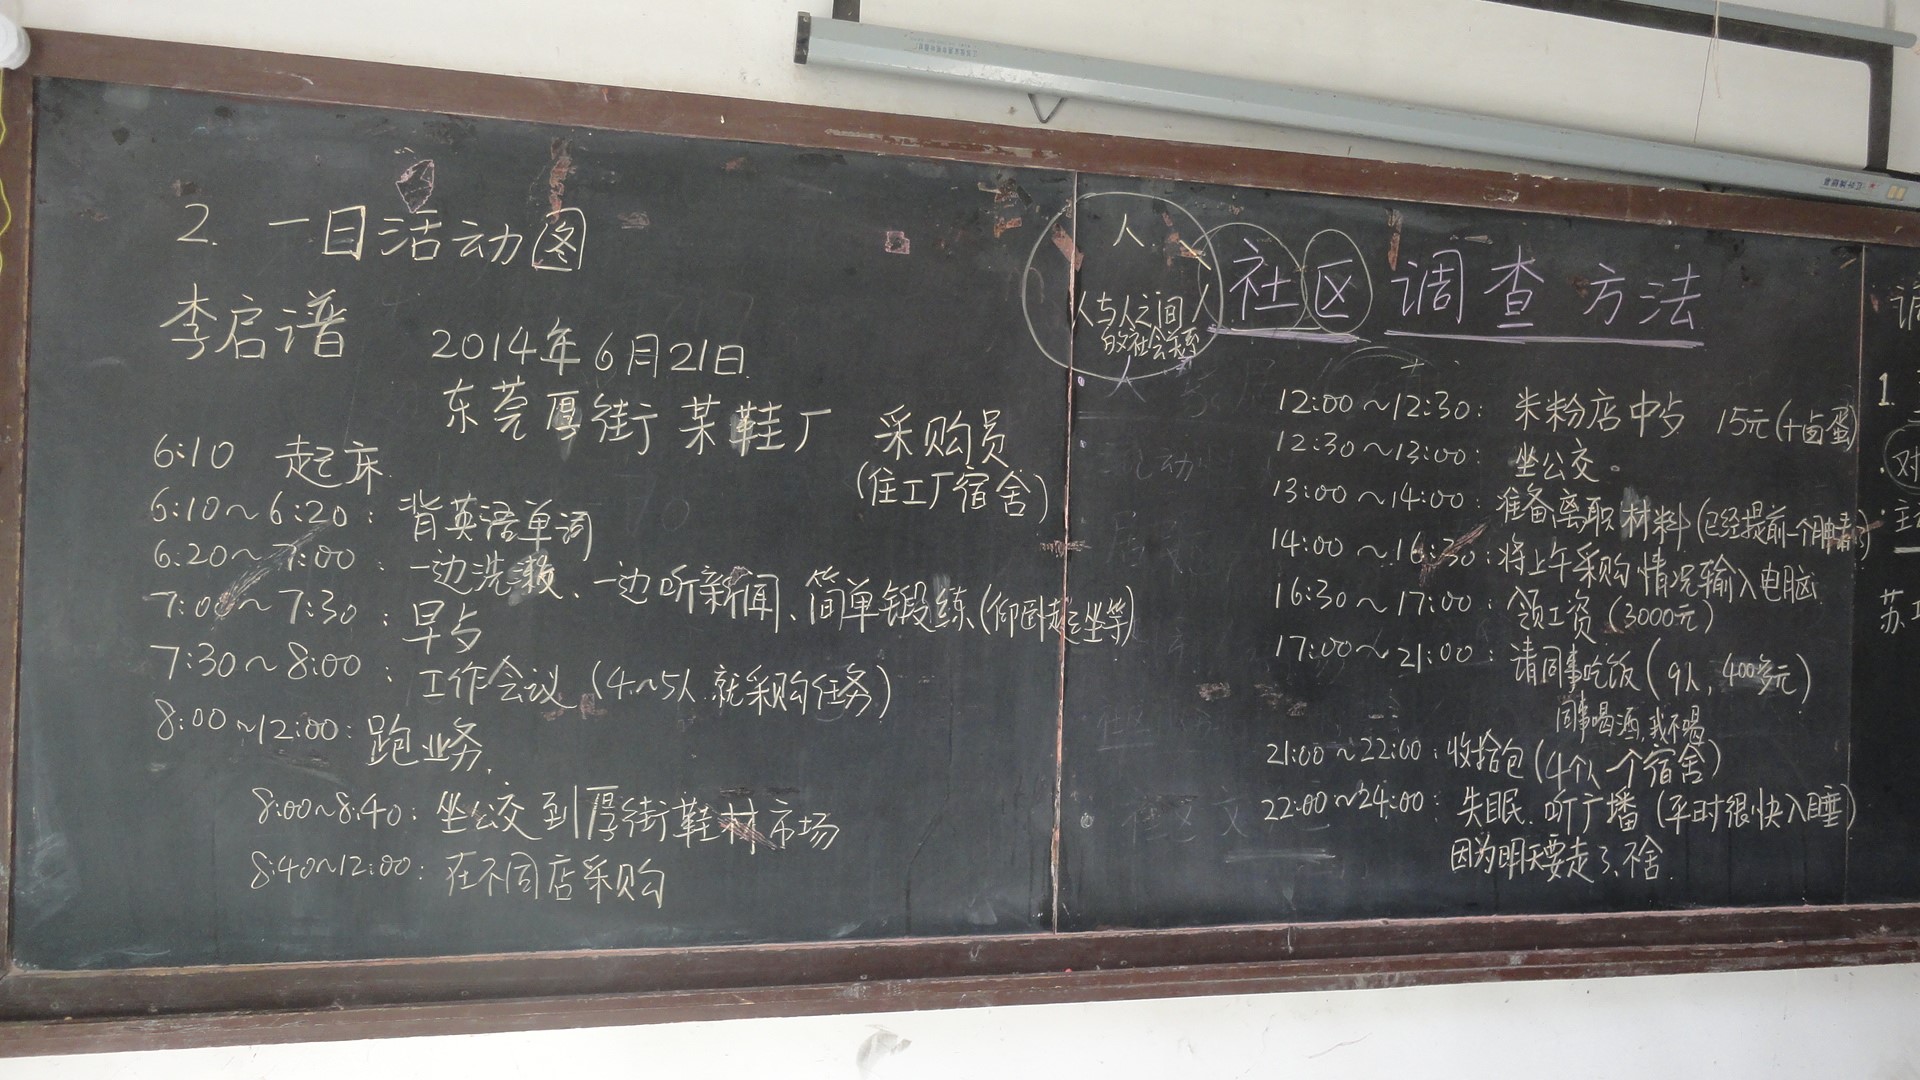 2. 一日活动图
李启谱
2014年6月21日
东莞厚街某鞋厂 采购员
(住工厂宿舍)
6:10 起床
6:10~6:20: 背英语单词
6:20~7:00: 一边洗漱、一边听新闻、简单锻练(仰卧起坐等)
7:00~7:30: 早歺
7:30~8:00: 工作会议 (4~5人.就采购任务)
8:00~12:00: 跑业务.
8:00~8:40: 坐公交到厚街鞋材市场
8:40~12:00: 在不同店采购
人
人与人之间
的社会关系
社区调查方法
12:00~12:30: 米粉店中歺 15元(十卤蛋)
12:30~13:00: 坐公交。
13:00~14:00: 准备离职材料(已经提前一个月申请了)
14:00~16:30: 将上午采购情况输入电脑
16:30~17:00: 领工资 (3000元)
17:00~21:00: 请同事吃饭(9人, 400多元)
同事喝酒,我不喝
21:00~22:00: 收拾包(4个人一个宿舍)
22:00~24:00: 失眠.听广播(平时很快入睡)
因为明天要走了,不舍.
1.
对
主
苏